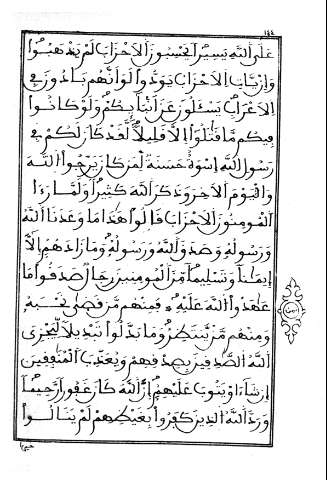 ١٤٤
عَلَى اللَّهِ يَسِيراً يَحْسِبُونَ الَاحْزَابَ لَمْ يَذْهَبُواْ
وَإِنْ يَّاتِ الَاحْزَابُ يَوَدُّواْ لَوَ انَّهُم بَادُونَ فِي
الَاعْرَابِ يَسْـَٔلُونَ عَنَ انۢبَآئِكُمْ وَلَوْ كَانُواْ
فِيكُم مَّا قَٰتَلُواْ إِلَّا قَلِيلاً لَّقَدْ كَانَ لَكُمْ فِي
رَسُولِ اللَّهِ إِسْوَةٌ حَسَنَةٌ لِّمَن كَانَ يَرْجُواْ اللَّهَ
وَالْيَوْمَ الَاخِرَ وَذَكَرَ اللَّهَ كَثِيراً وَلَمَّا رَءَا
الْمُومِنُونَ الَاحْزَابَ قَالُواْ هَٰذَا مَا وَعَدَنَا اللَّهُ
وَرَسُولُهُ وَصَدَقَ اللَّهُ وَرَسُولُهُ وَمَا زَادَهُمُ إِلَّا
إِيمَٰناً وَتَسْلِيماً مِّنَ الْمُومِنِينَ رِجَالٌ صَدَقُواْ مَا
عَٰهَدُواْ اللَّهَ عَلَيْهِ فَمِنْهُم مَّن قَضَىٰ نَحْبَهُ
وَمِنْهُم مَّنْ يَّنتَظِرُ وَمَا بَدَّلُواْ تَبْدِيلاً لِّيَجْزِيَ
اللَّهُ الصَّٰدِقِينَ بِصِدْقِهِمْ وَيُعَذِّبَ الْمُنَٰفِقِينَ
إِن شَآءَ اوْ يَتُوبَ عَلَيْهِمُ إِنَّ اللَّهَ كَانَ غَفُوراً رَّحِيماً
وَرَدَّ اللَّهُ الَّذِينَ كَفَرُواْ بِغَيْظِهِمْ لَمْ يَنَالُواْ
خيرا